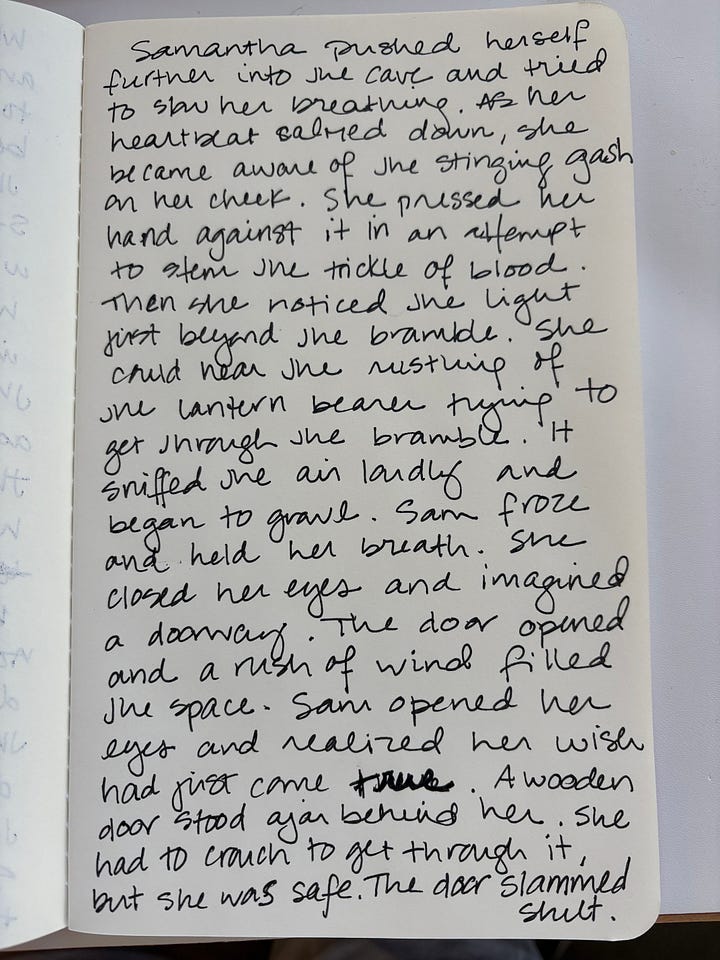 Samantha pushed herself
further into the cave and tried
to slow her breathing. As her
heartbeat calmed down, she
became aware of the stinging gash
on her cheek. She pressed her
hand against it in an attempt
to stem the trickle of blood.
Then she noticed the light
just beyond the bramble. She
could hear the rustling of
the lantern bearer trying to
get through the bramble. It
sniffed the air loudly and
began to growl. Sam froze
and held her breath. She
closed her eyes and imagined
a doorway. The door opened
and a rush of wind filled
the space. Sam opened her
eyes and realized her wish
had just come true. A wooden
door stood ajar behind her. She
had to crouch to get through it,
but she was safe. The door slammed
shut.